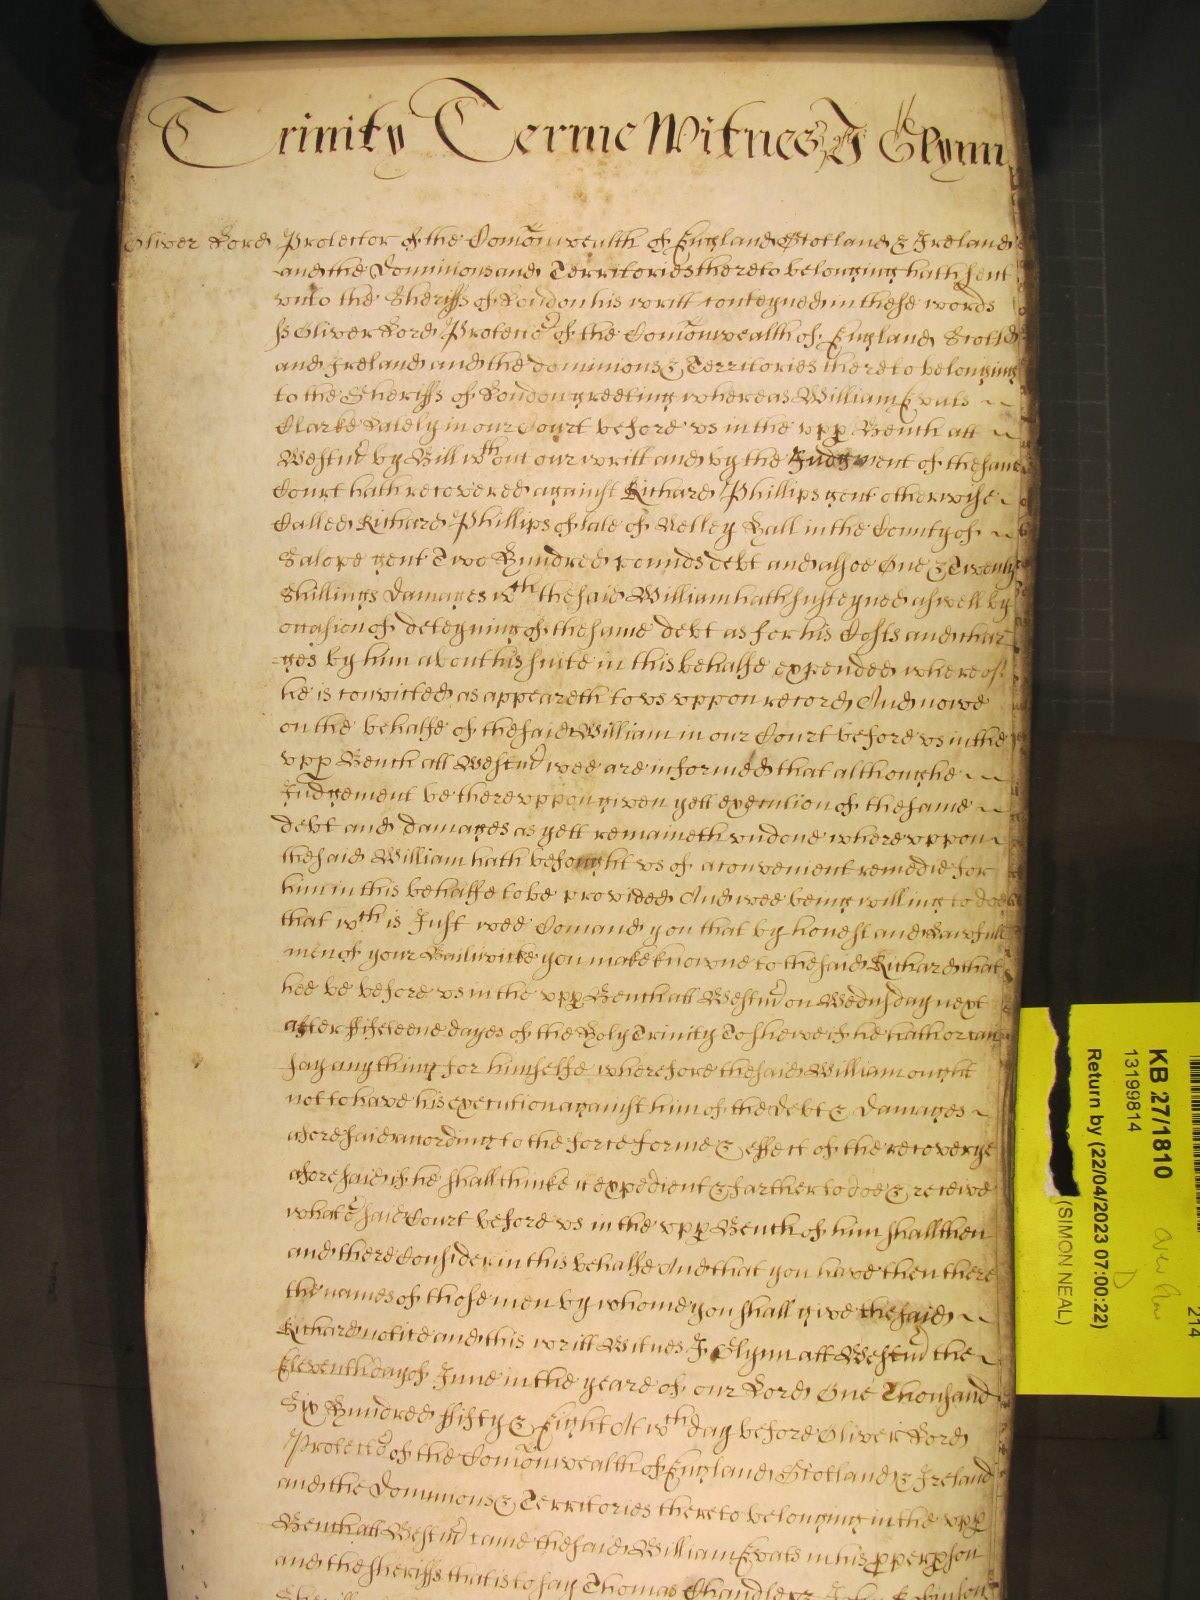 Trinity Terme Witnes J Glynn
Oliver Lord Protector of the Comonwealth of England Scotland & Ireland
and the Dominions and Territories thereto belonging hath sent
unto the Sheriffs of London his writt conteyned in these words
ss Oliver Lord Protector of the Comonwealth of England Scotld
and Ireland and the dominions & Territories thereto belonging
to the Sheriffs of London greeting whereas William Evats
Clarke Lately in our Court before us in the upp Bench att
Westmr by Bill wthout our writt and by the Judgment of the same
Court hath recovered against Richard Phillips gent otherwise
Called Richard Phillips of late of Nelley Hall in the County of
Salope gent Two Hundred pounds debt and alsoe One & Twenty
Shillings Damages wch the said William hath susteyned aswell by
occasion of deteyning of the same debt as for his Costs and char
ges by him about his suite in this behalfe expended whereof
he is convicted as appeareth to us uppon record And nowe
on the behalfe of the said William in our Court before us in the
upp Bench att Westmr wee are informed that although
Judgement be thereuppon given yett execution of the same
debt and damages as yett remaineth undone whereuppon
the said William hath besought us of a convenient remedie for
him in this behalfe to be provided And wee being willing to doe
that wch is Just wee Comand you that by honest and Lawfull
men of your Bailiwicke you make knowne to the said Richard that
hee be before us in the upp Bench att Westmr on Wednsday next
after fifteene dayes of the Holy Trinity To shewe if he hath or can
say anything for himselfe wherefore the said William ought
not to have his execution against him of the debt & Damages
aforesaid according to the force forme & effect of the recoverye
aforesaid if he shall thinke it expedient & farther to doe & receive
what e said Court before us in the upp Bench of him shall then
and there Consider in this behalfe And that you have then there
the names of those men by whome you shall give the said
Richard notice and this writt Witnes J Glynn att Westmr the
Eleventh day of June in the yeare of our Lord One Thousand
Six Hundred ffifty & Eight At wch day before Oliver Lord
Protector of the Comonwealth of England Scotland & Ireland
and the Dominions & Territories thereto belonging in the upp
Bench att Westmr came the said William Evats in his pper pson
and the sheriffs that is to say Thomas Chandler & John Robinson
KB 27/1810
13199814
Return by (22/04/2023 07:00:22)
(SIMON NEAL)
214